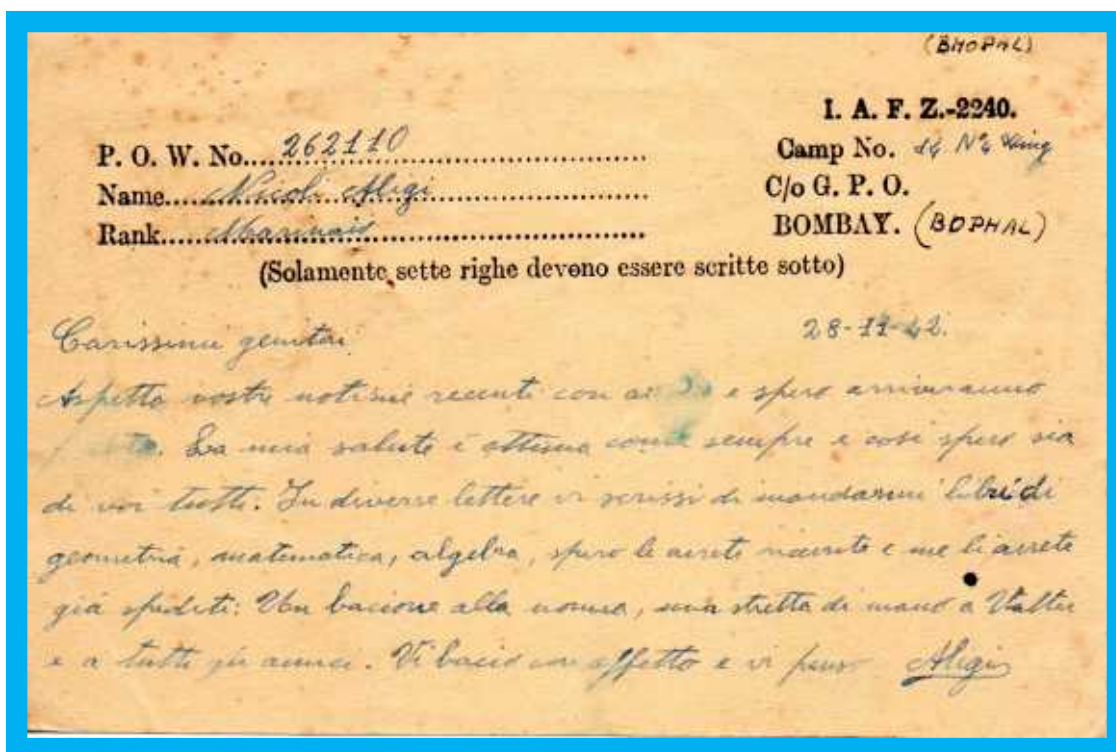 (BHOPAL)
I. A. F. Z.-2240.
P. O. W. No.... 262110
Camp No. 14 N°4 Wing
Name.... Nicoli Aligi
C/o G. P. O.
Rank.... Marinaio
BOMBAY. (BOPHAL)
(Solamente sette righe devono essere scritte sotto)
Carissimi genitori 28-11-42.
Aspetto vostre notizie recenti con e spero arriveranno
. La mia salute è ottima come sempre e così spero sia
di voi tutti. In diverse lettere vi scrissi di mandarmi libri di
geometria, matematica, algebra, spero le avrete ricevute e me li avrete
già spediti: Un bacione alla nonna, una stretta di mano a Valter
e a tutti gli amici. Vi bacio con affetto e vi penso Aligi